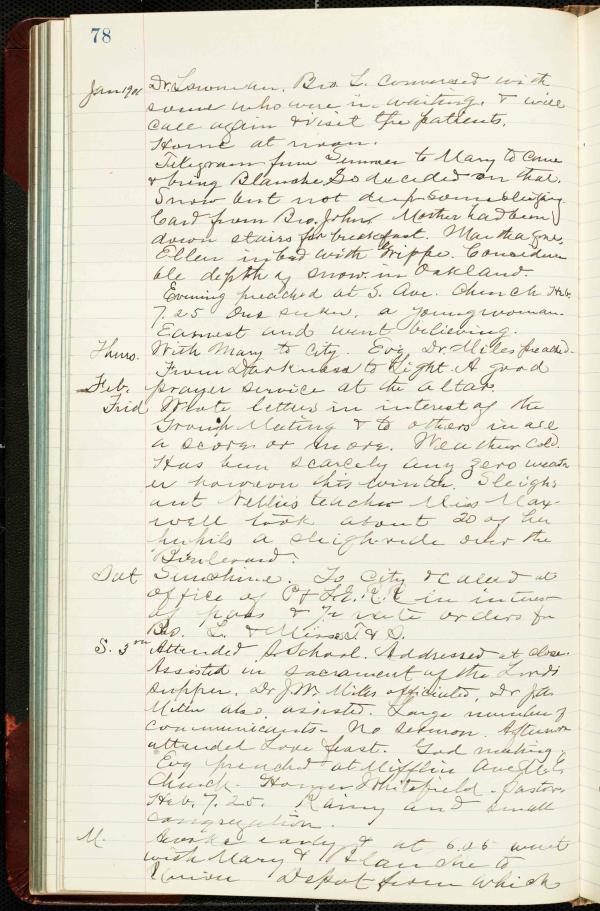 78
Jan 1901 Dr. Lowman. Bro L. conversed with
some who were in waiting. & will
call again & visit the patients.
Home at noon.
Telegram from Sumner to Mary to come
& bring Blanche. So decided on that.
Snow but not deep. Some sleighing.
Card from Bro. John. Mother had been
down stairs for breakfast. Martha gone.
Ellen in bed with Grippe. Considera
ble depth of snow in Oakland.
Evening preached at S. Ave. Church Heb.
7.25 One seeker, a young woman.
Earnest and went believing.
Thurs. With Mary to City. Evg Dr. Miles preached.
From Darkness to Light. A good
Feb. prayer service at the altar.
Frid Wrote letters in interest of the
Group Meeting & to others in all
a score or more. Weather cold.
Has been scarcely any zero weath
er however this winter. Sleighs
out Nellie's teacher Miss Max-
well took about 20 of her
pupils a sleighride over the
Boulevard.
Sat Sunshine. To City & called at
office of P & L.E. R.R in interest
of pass & 1/2 rate orders for
Bro. L. & Misses T & D.
S. 3rd Attended S. School. Addressed at close.
Assisted in sacrament of the Lords
supper. Dr J.W. Miles officiated, Dr Jas
Miller also assisted. Large number of
communicants - No sermon. Afternoon
attended Love feast. Good meeting.
Evg preached at Mifflin Ave M.E.
Church. Homer Whitefield - Pastor.
Heb. 7.25. Rainy and small
congregation.
M. Awoke early & at 6.05 went
with Mary & Blanche to
Union Depot from which